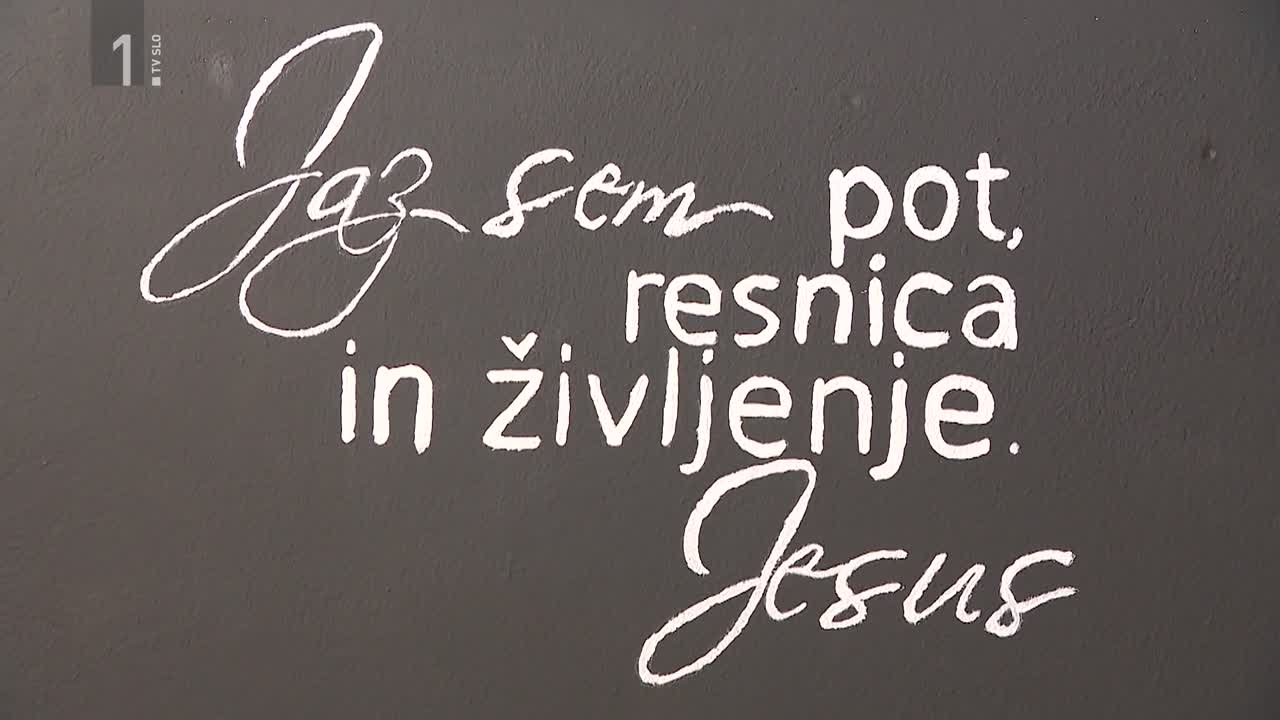 1
TV SLO
Jaz sem pot,
resnica
in življenje.
Jesus